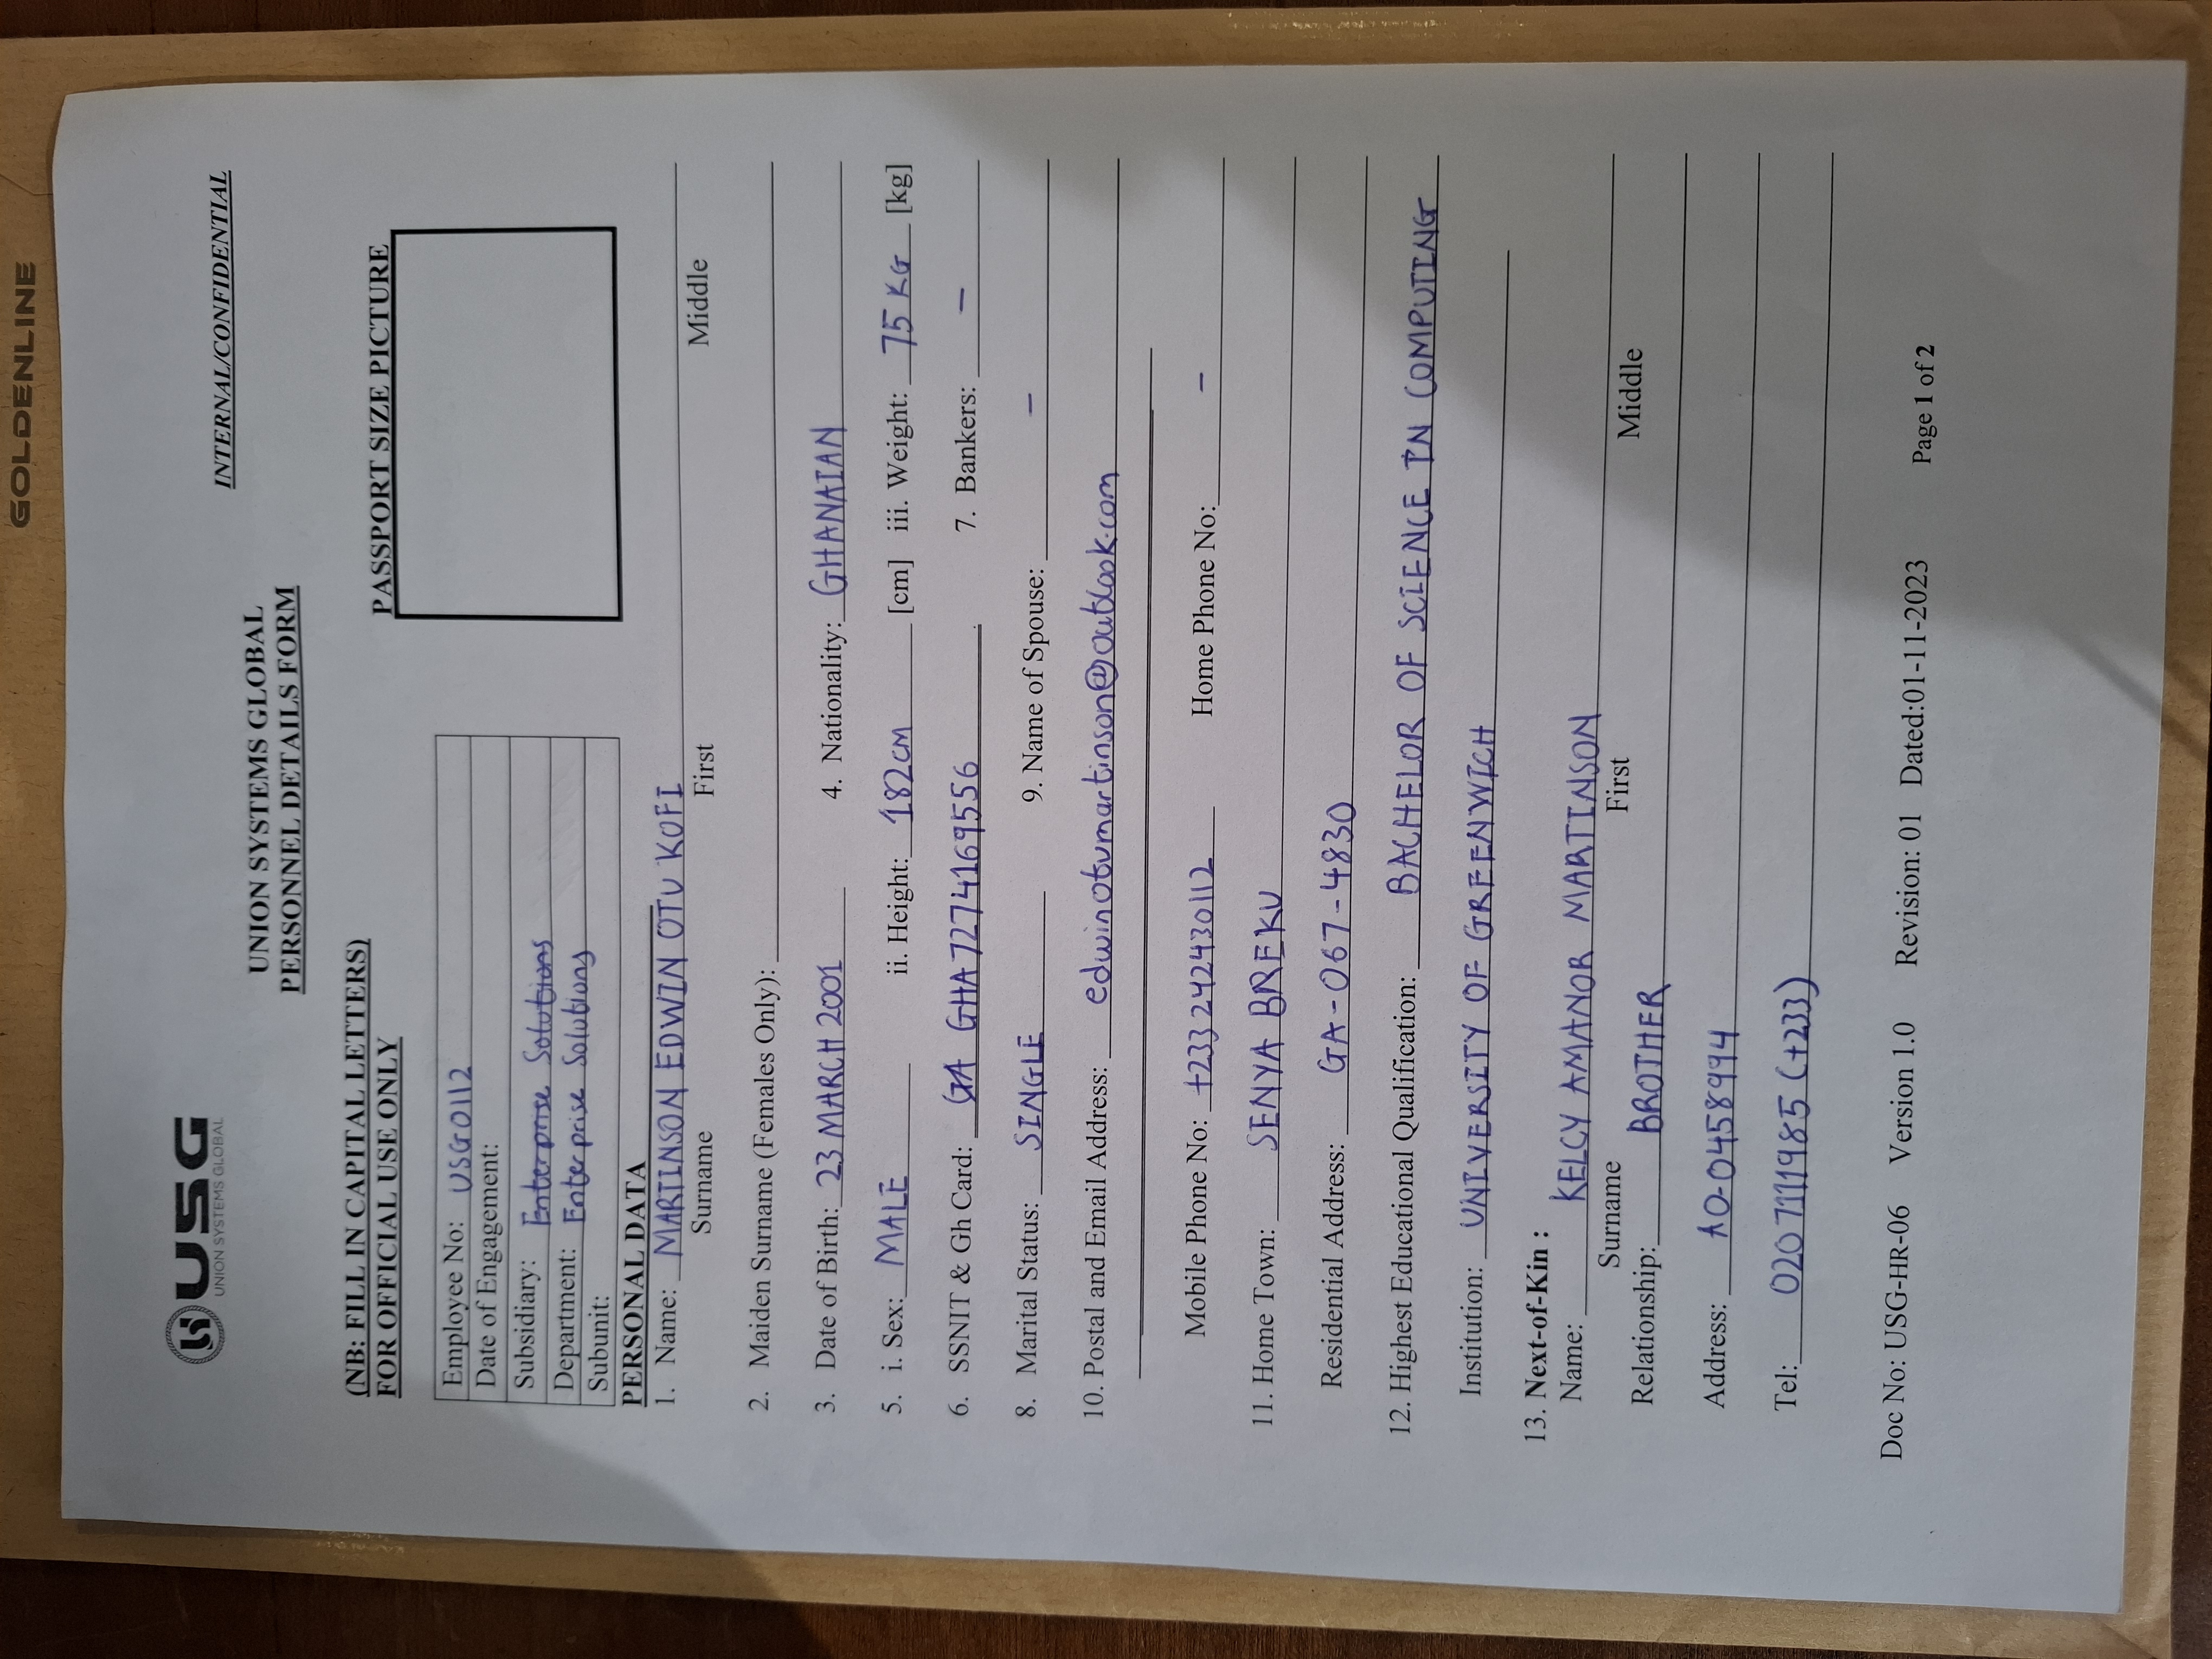 GOLDENLINE
USG
UNION SYSTEMS GLOBAL
INTERNAL/CONFIDENTIAL
UNION SYSTEMS GLOBAL
PERSONNEL DETAILS FORM
(NB: FILL IN CAPITAL LETTERS)
FOR OFFICIAL USE ONLY
PASSPORT SIZE PICTURE
Employee No: USG0112
Date of Engagement:
Subsidiary: Enterprise Solutions
Department: Enterprise Solutions
Subunit:
PERSONAL DATA
1. Name: MARTINSON EDWIN OTU KOFI
Surname First Middle
2. Maiden Surname (Females Only):
3. Date of Birth: 23 MARCH 2001 4. Nationality: GHANAIAN
5. i. Sex: MALE ii. Height: 182CM [cm] iii. Weight: 75 KG [kg]
6. SSNIT & Gh Card: GA GHA7274169556 7. Bankers: –
8. Marital Status: SINGLE 9. Name of Spouse: –
10. Postal and Email Address: edwinotumartinson@outlook.com
Mobile Phone No: +233242430112 Home Phone No: –
11. Home Town: SENYA BREKU
Residential Address: GA-067-4830
12. Highest Educational Qualification: BACHELOR OF SCIENCE IN COMPUTING
Institution: UNIVERSITY OF GREENWICH
13. Next-of-Kin :
Name: KELCY AMANOR MARTINSON
Surname First Middle
Relationship: BROTHER
Address: AO-0458994
Tel: 0207111985 (+233)
Doc No: USG-HR-06 Version 1.0 Revision: 01 Dated:01-11-2023 Page 1 of 2